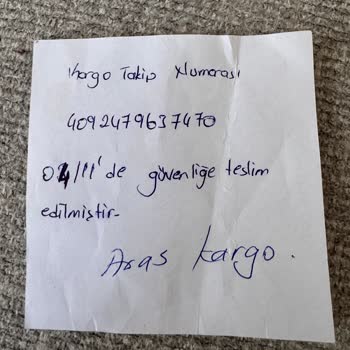 Kargo Takip Numarası
4092479637470
04/11'de güvenliğe teslim
edilmiştir.
Aras kargo.